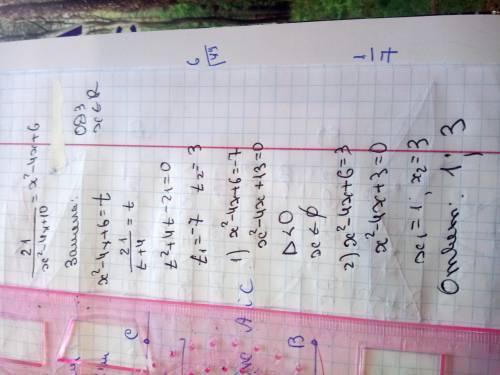 21/(x²-4x+10) = x²-4x+6
ОДЗ
x ∈ R
Замена:
x²-4x+6=t
21/(t+4) = t
t²+4t-21=0
t₁=-7 t₂=3
1) x²-4x+6=-7
x²-4x+13=0
D<0
x ∈ ∅
2) x²-4x+6=3
x²-4x+3=0
x₁=1; x₂=3
Ответ: 1; 3
C
B